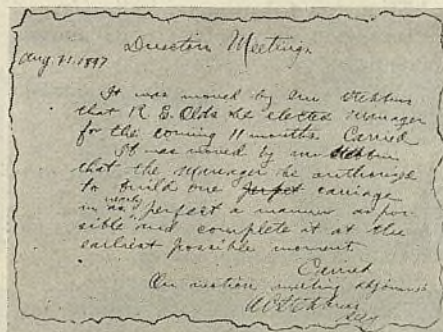 Directors Meeting
Aug. 21. 1897
It was moved by Mr Stebbins
that R. E. Olds be elected Manager
for the coming 11 months. Carried
It was moved by Mr Stebbins
that the Manager be authorized
to build one perfect carriage
in as nearly perfect a manner as pos-
sible and complete it at the
earliest possible moment
Carried
On motion meeting adjourned
Secy